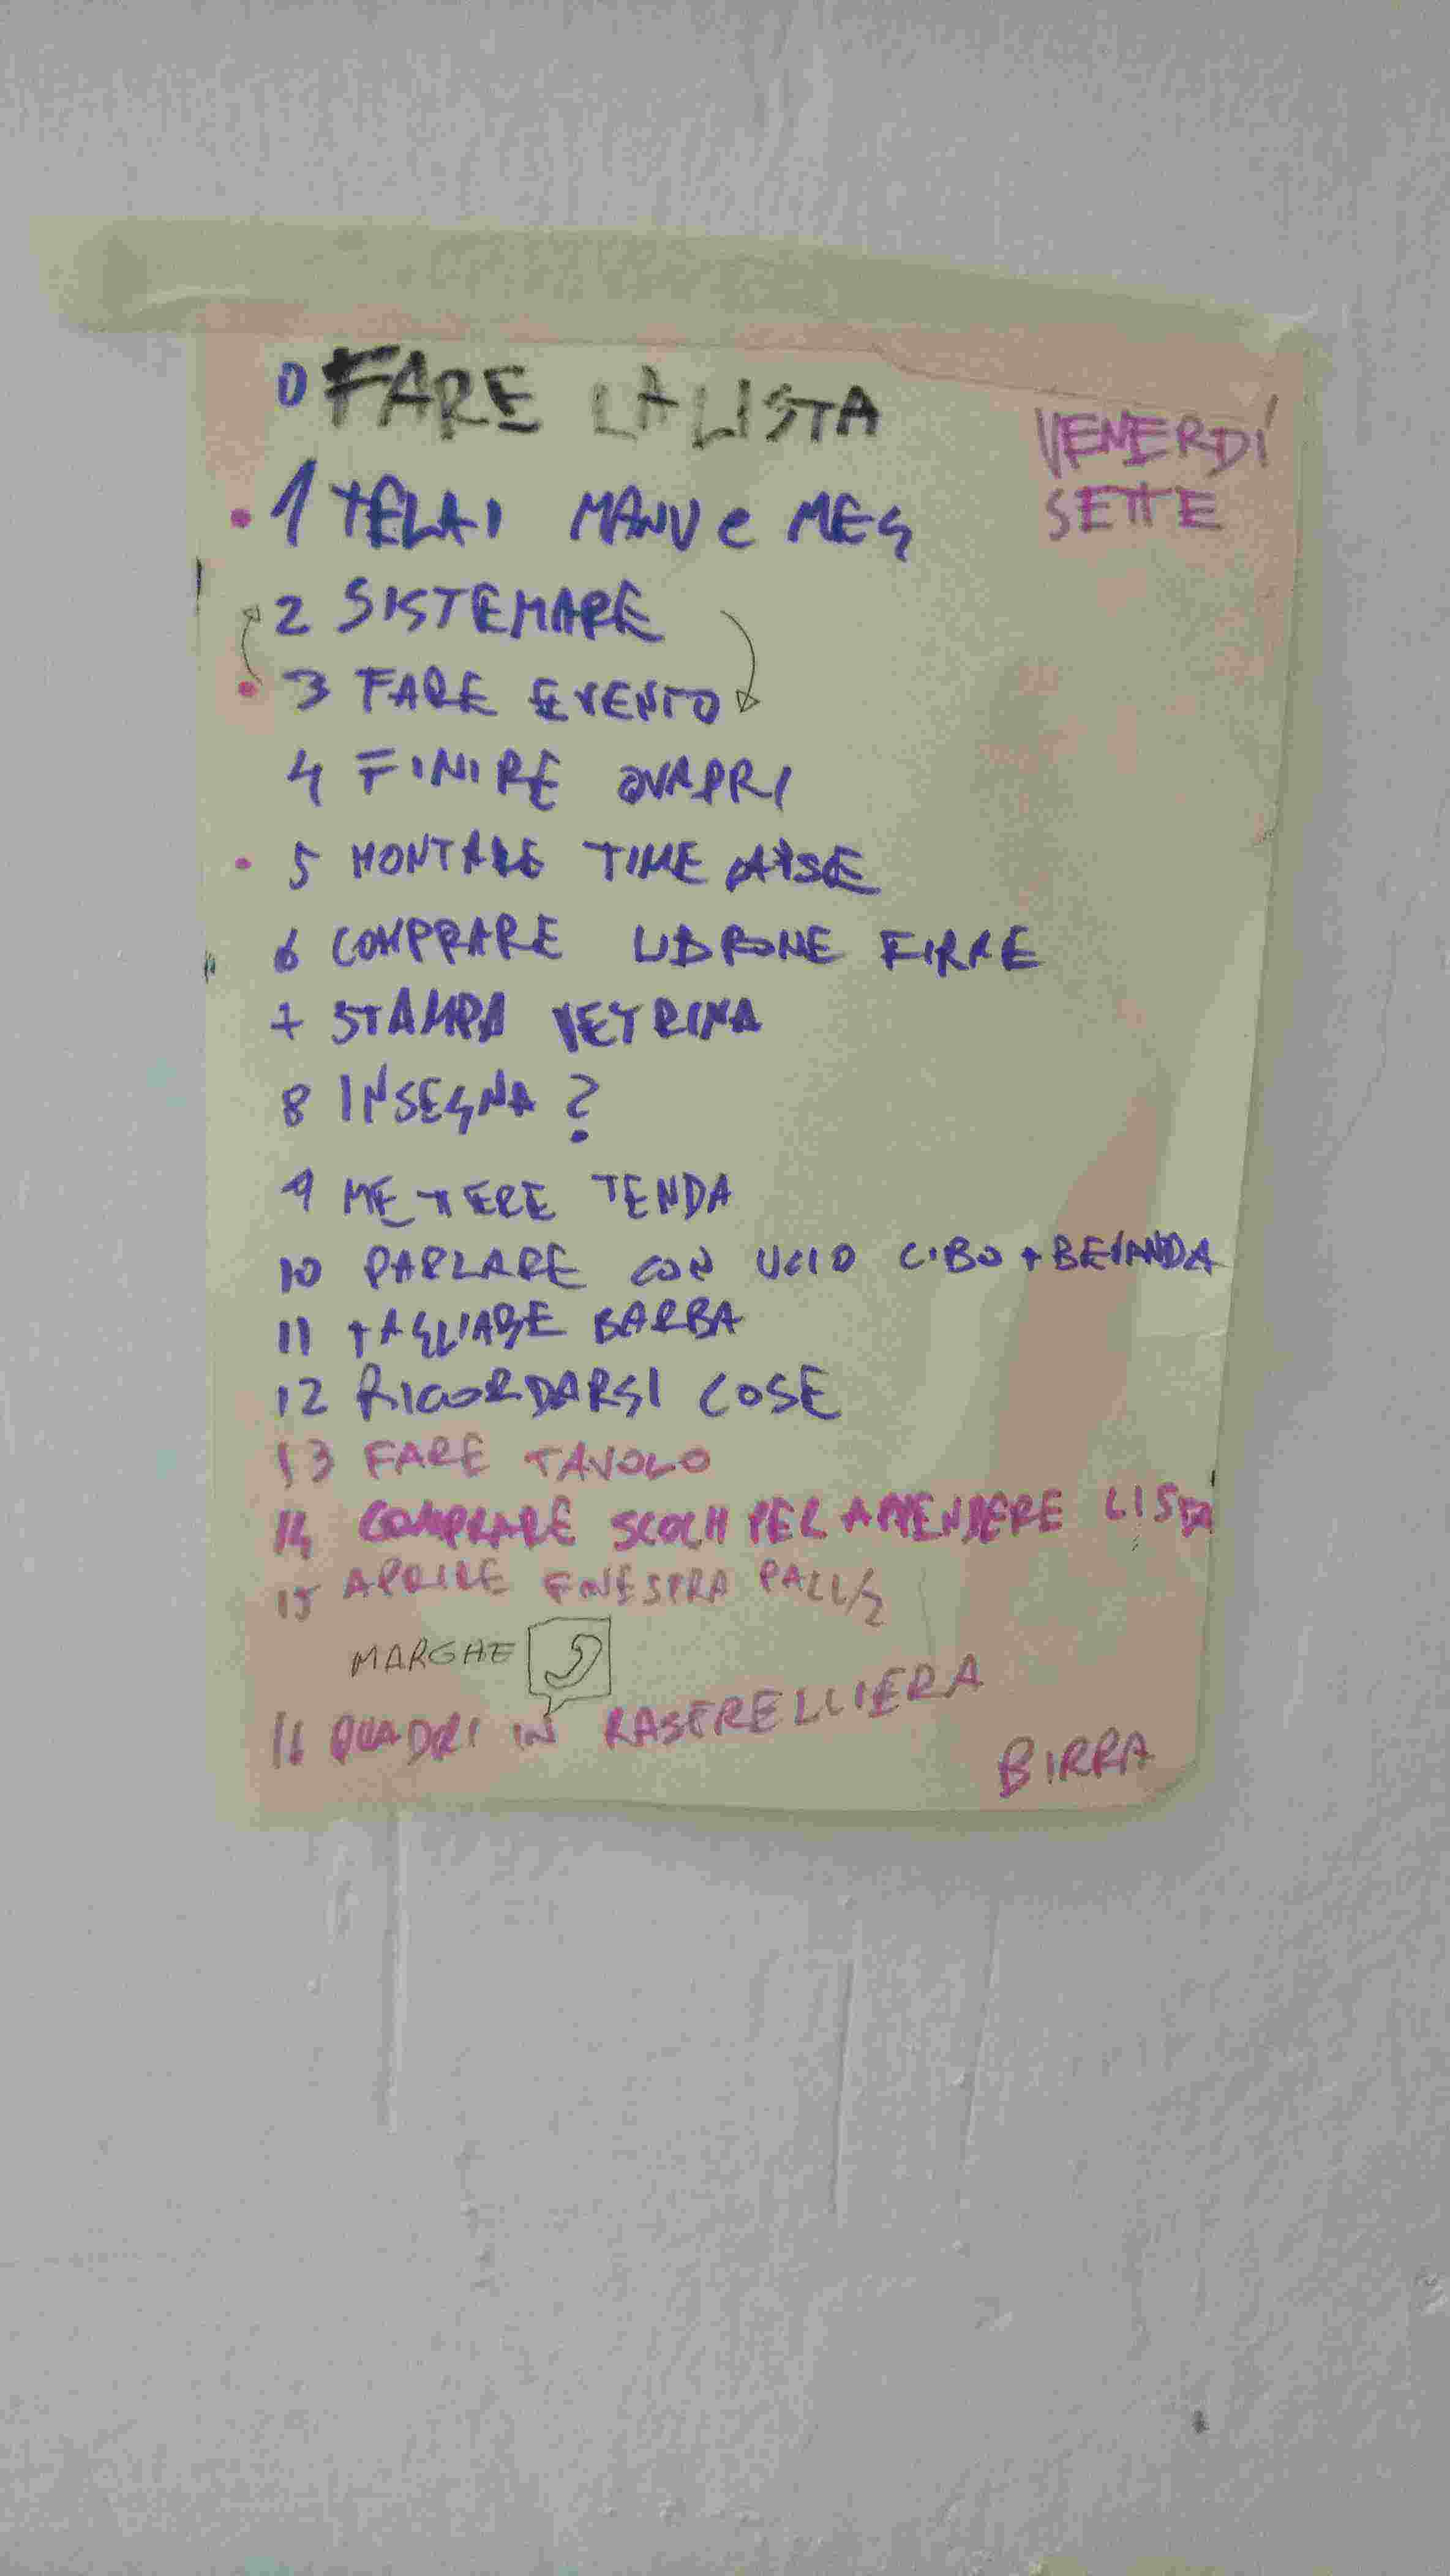 0 FARE LA LISTA
VENERDÍ
SETTE
1 TELAI MANU e MEG
2 SISTEMARE
3 FARE EVENTO
4 FINIRE QUADRI
5 MONTARE TIME
6 COMPRARE LIBRONE FIRME
7 STAMPA VETRINA
8 INSEGNA ?
9 METTERE TENDA
10 PARLARE CON UCIO CIBO + BEVANDA
11 TAGLIARE BARBA
12 RICORDARSI COSE
13 FARE TAVOLO
14 COMPRARE SCOCH PER APPENDERE LISTA
15 APRIRE FINESTRA
MARGHE
16 QUADRI IN RASTRELLIERA
BIRRA